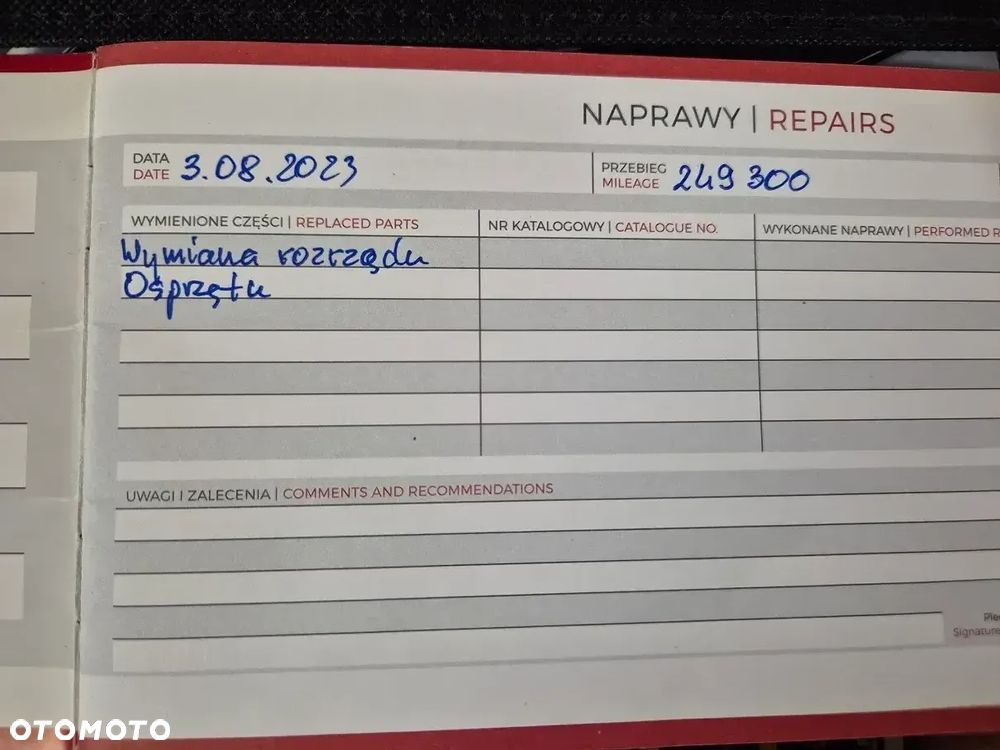 NAPRAWY | REPAIRS
DATA
DATE
3.08.2023
PRZEBIEG
MILEAGE
249 300
WYMIENIONE CZĘŚCI | REPLACED PARTS
NR KATALOGOWY | CATALOGUE NO.
WYKONANE NAPRAWY | PERFORMED R
Wymiana rozrządu
Osprzętu
UWAGI I ZALECENIA | COMMENTS AND RECOMMENDATIONS
Pie
Signature
OTOMOTO